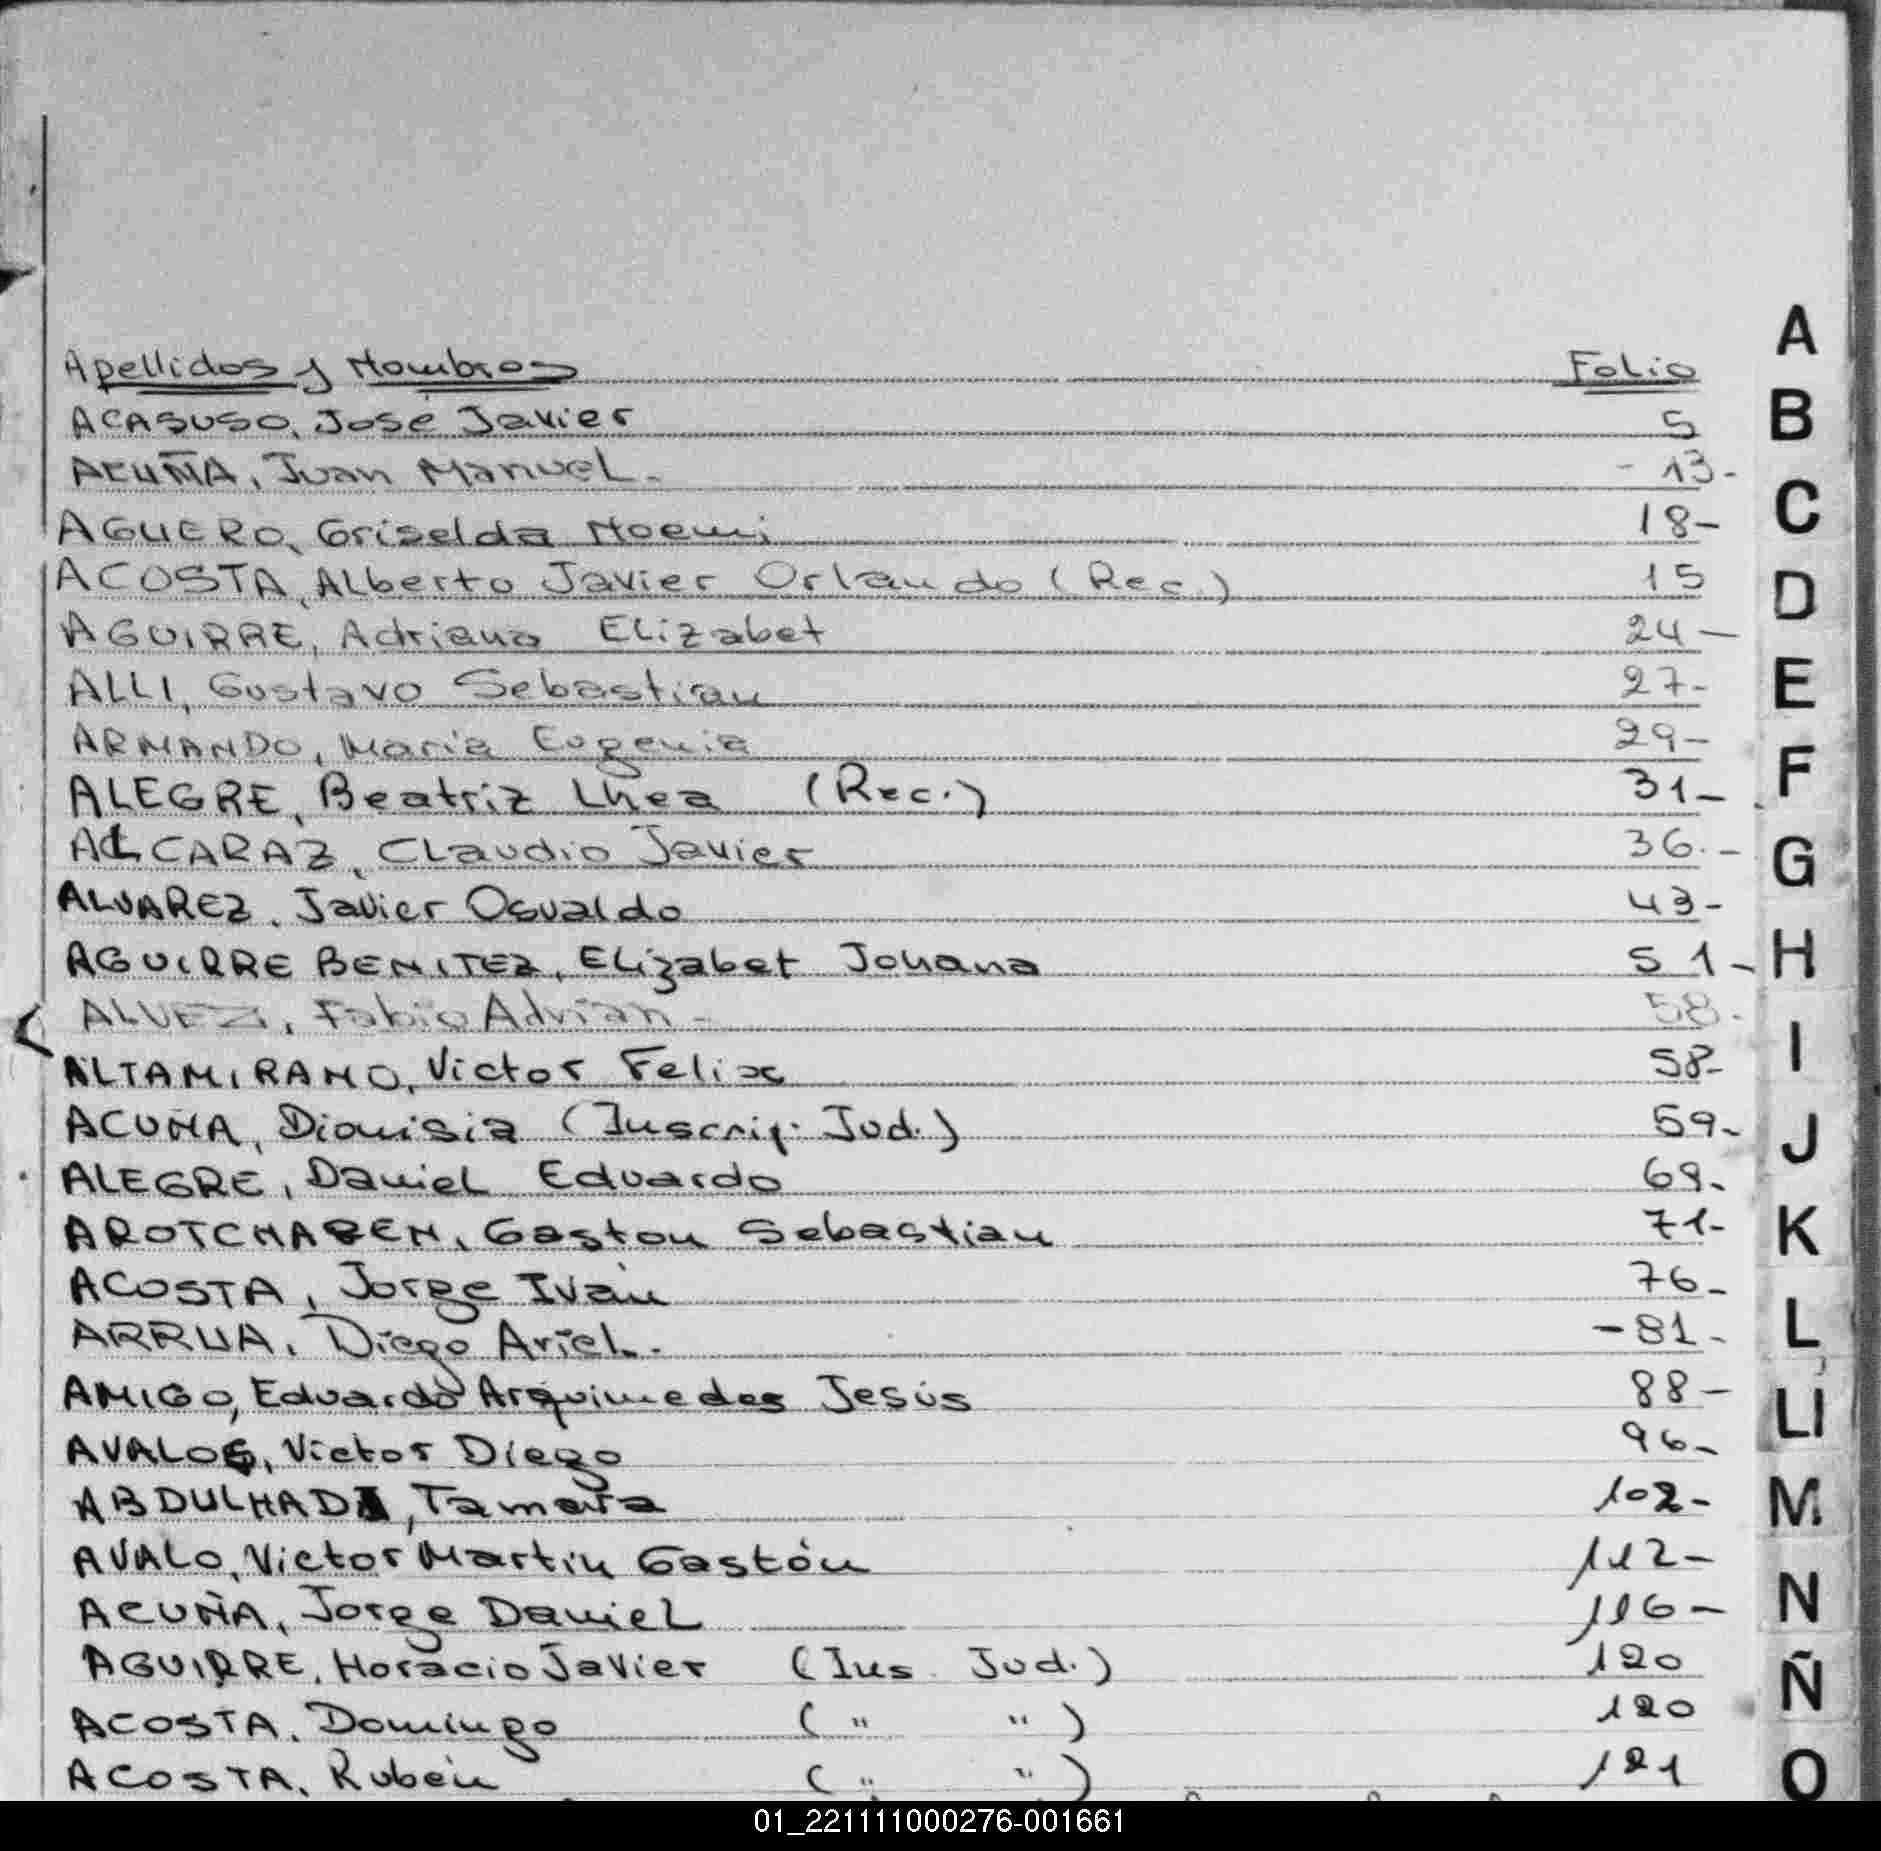 Apellidos y Nombres Folio
ACASUSO, José Javier 5
ACUÑA, Juan Manuel. - 13-
AGUERO, Griselda Noemi 18-
ACOSTA, Alberto Javier Orlando (Rec.) 15
AGUIRRE, Adriana Elizabet 24-
ALLI, Gustavo Sebastian 27-
ARMANDO, María Eugenia 29-
ALEGRE, Beatriz Lhea (Rec.) 31-
ALCARAZ, Claudio Javier 36.-
ALVAREZ, Javier Osvaldo 43-
AGUIRRE BENITEZ, Elizabet Johana 51-
ALVEZ, Fabio Adrian - 58.
ALTAMIRANO, Victor Felix 58-
ACUÑA, Dionisia (Inscrip. Jud.) 59-
ALEGRE, Daniel Eduardo 69-
AROTCHAREN, Gaston Sebastian 71-
ACOSTA, Jorge Iván 76-
ARRUA, Diego Ariel. -81-
AMIGO, Eduardo Arquimedes Jesús 88-
AVALOS, Victor Diego 96-
Tamara 102-
AVALO, Victor Martin Gastón 112-
ACUÑA, Jorge Daniel 116-
AGUIRRE, Horacio Javier (Ins. Jud.) 120
ACOSTA, Domingo ( " " ) 120
ACOSTA, Rubén ( " " ) 121
A
B
C
D
E
F
G
H
I
J
K
L
Ll
M
N
Ñ
O
01_221111000276-001661